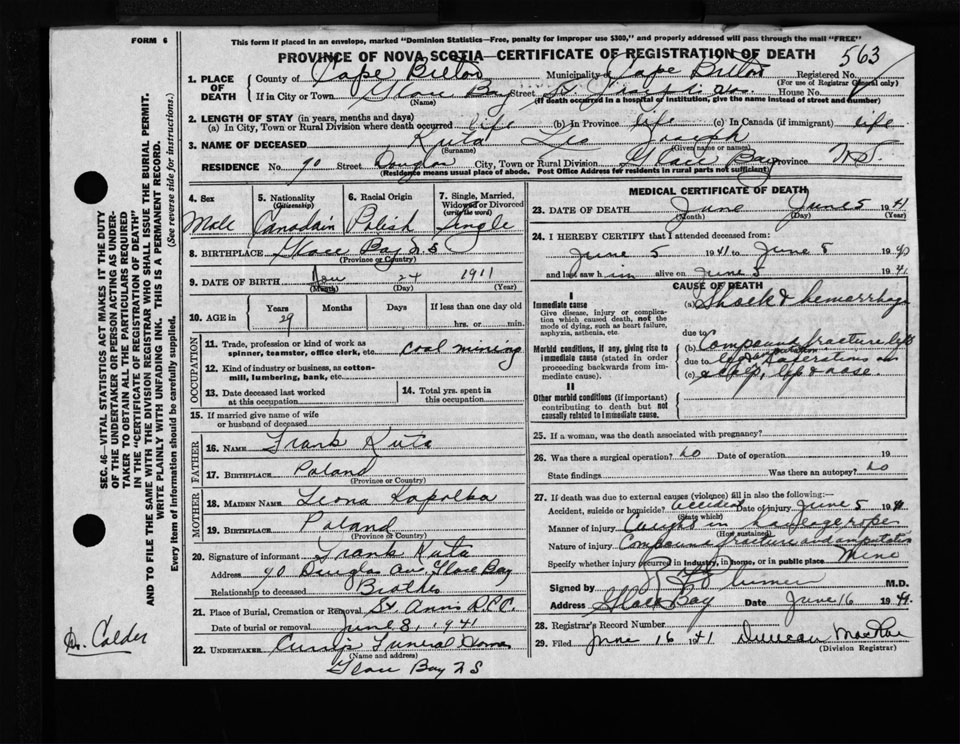 FORM 6
This form if placed in an envelope, marked "Dominion Statistics—Free, penalty for improper use $300," and properly addressed will pass through the mail "FREE"
PROVINCE OF NOVA SCOTIA—CERTIFICATE OF REGISTRATION OF DEATH
563
1. PLACE OF DEATH
County of Cape Breton Municipality of Cape Breton Registered No.
(For use of Registrar General only)
If in City or Town Glace Bay Street St. Joseph Hos. House No.
(Name) (If death occurred in a hospital or institution, give the name instead of street and number)
2. LENGTH OF STAY (in years, months and days)
(a) In City, Town or Rural Division where death occurred life (b) in Province life (c) in Canada (if immigrant) life
3. NAME OF DECEASED Kuta Leo Joseph
(Surname) (Given name or names)
RESIDENCE No. 90 Street Douglas City, Town or Rural Division Glace Bay Province N.S.
(Residence means usual place of abode. Post Office Address for residents in rural parts not sufficient)
4. Sex
Male
5. Nationality (Citizenship)
Canadain
6. Racial Origin
Polish
7. Single, Married, Widowed or Divorced (write the word)
Single
8. BIRTHPLACE Glace Bay N.S
(Province or Country)
9. DATE OF BIRTH 24 1911
(Month) (Day) (Year)
10. AGE in Years Months Days If less than one day old
29 hrs. or min.
OCCUPATION
11. Trade, profession or kind of work as spinner, teamster, office clerk, etc. coal mining
12. Kind of industry or business, as cotton-mill, lumbering, bank, etc.
13. Date deceased last worked at this occupation
14. Total yrs. spent in this occupation
15. If married give name of wife or husband of deceased
FATHER
16. NAME Frank Kuta
17. BIRTHPLACE Poland
(Province or Country)
MOTHER
18. MAIDEN NAME Leona Kapolka
19. BIRTHPLACE Poland
(Province or Country)
20. Signature of informant Frank Kuta
Address 90 Douglas Ave. Glace Bay
Relationship to deceased Brother
21. Place of Burial, Cremation or Removal St Ann's R.C.C.
Date of burial or removal June 8, 1941
22. UNDERTAKER Funeral Home
(Name and address)
Glace Bay N S
MEDICAL CERTIFICATE OF DEATH
23. DATE OF DEATH June June 5 1941
(Month) (Day) (Year)
24. I HEREBY CERTIFY that I attended deceased from:
June 5 1941 to June 5 19
and last saw him alive on June 5 1941
CAUSE OF DEATH
I
Immediate cause
Give disease, injury or complication which caused death, not the mode of dying, such as heart failure, asphyxia, asthenia, etc.
(a) Shock & hemorrhage
due to
Morbid conditions, if any, giving rise to immediate cause (stated in order proceeding backwards from immediate cause).
(b) Compound fracture left
due to leg & amputation lacerations on
(c) scalp, lip & nose.
II
Other morbid conditions (if important) contributing to death but not causally related to immediate cause.
25. If a woman, was the death associated with pregnancy?
26. Was there a surgical operation? no Date of operation 19
State findings Was there an autopsy? no
27. If death was due to external causes (violence) fill in also the following:—
Accident, suicide or homicide? accident Date of injury June 5 19
(State which)
Manner of injury Caught in haulage rope
(How sustained)
Nature of injury Compound fracture and amputation
Specify whether injury occurred in industry, in home, or in public place Mine
Signed by M.D.
Address Glace Bay Date June 16 1941.
28. Registrar's Record Number
29. Filed June 16 1941 Duncan MacRae
(Division Registrar)
SEC. 46—VITAL STATISTICS ACT MAKES IT THE DUTY OF THE UNDERTAKER OR PERSON ACTING AS UNDERTAKER TO OBTAIN ALL THE PARTICULARS REQUIRED IN THE "CERTIFICATE OF REGISTRATION OF DEATH" AND TO FILE THE SAME WITH THE DIVISION REGISTRAR WHO SHALL ISSUE THE BURIAL PERMIT.
WRITE PLAINLY WITH UNFADING INK. THIS IS A PERMANENT RECORD.
Every item of Information should be carefully supplied. (See reverse side for instructions.)
Dr. Calder